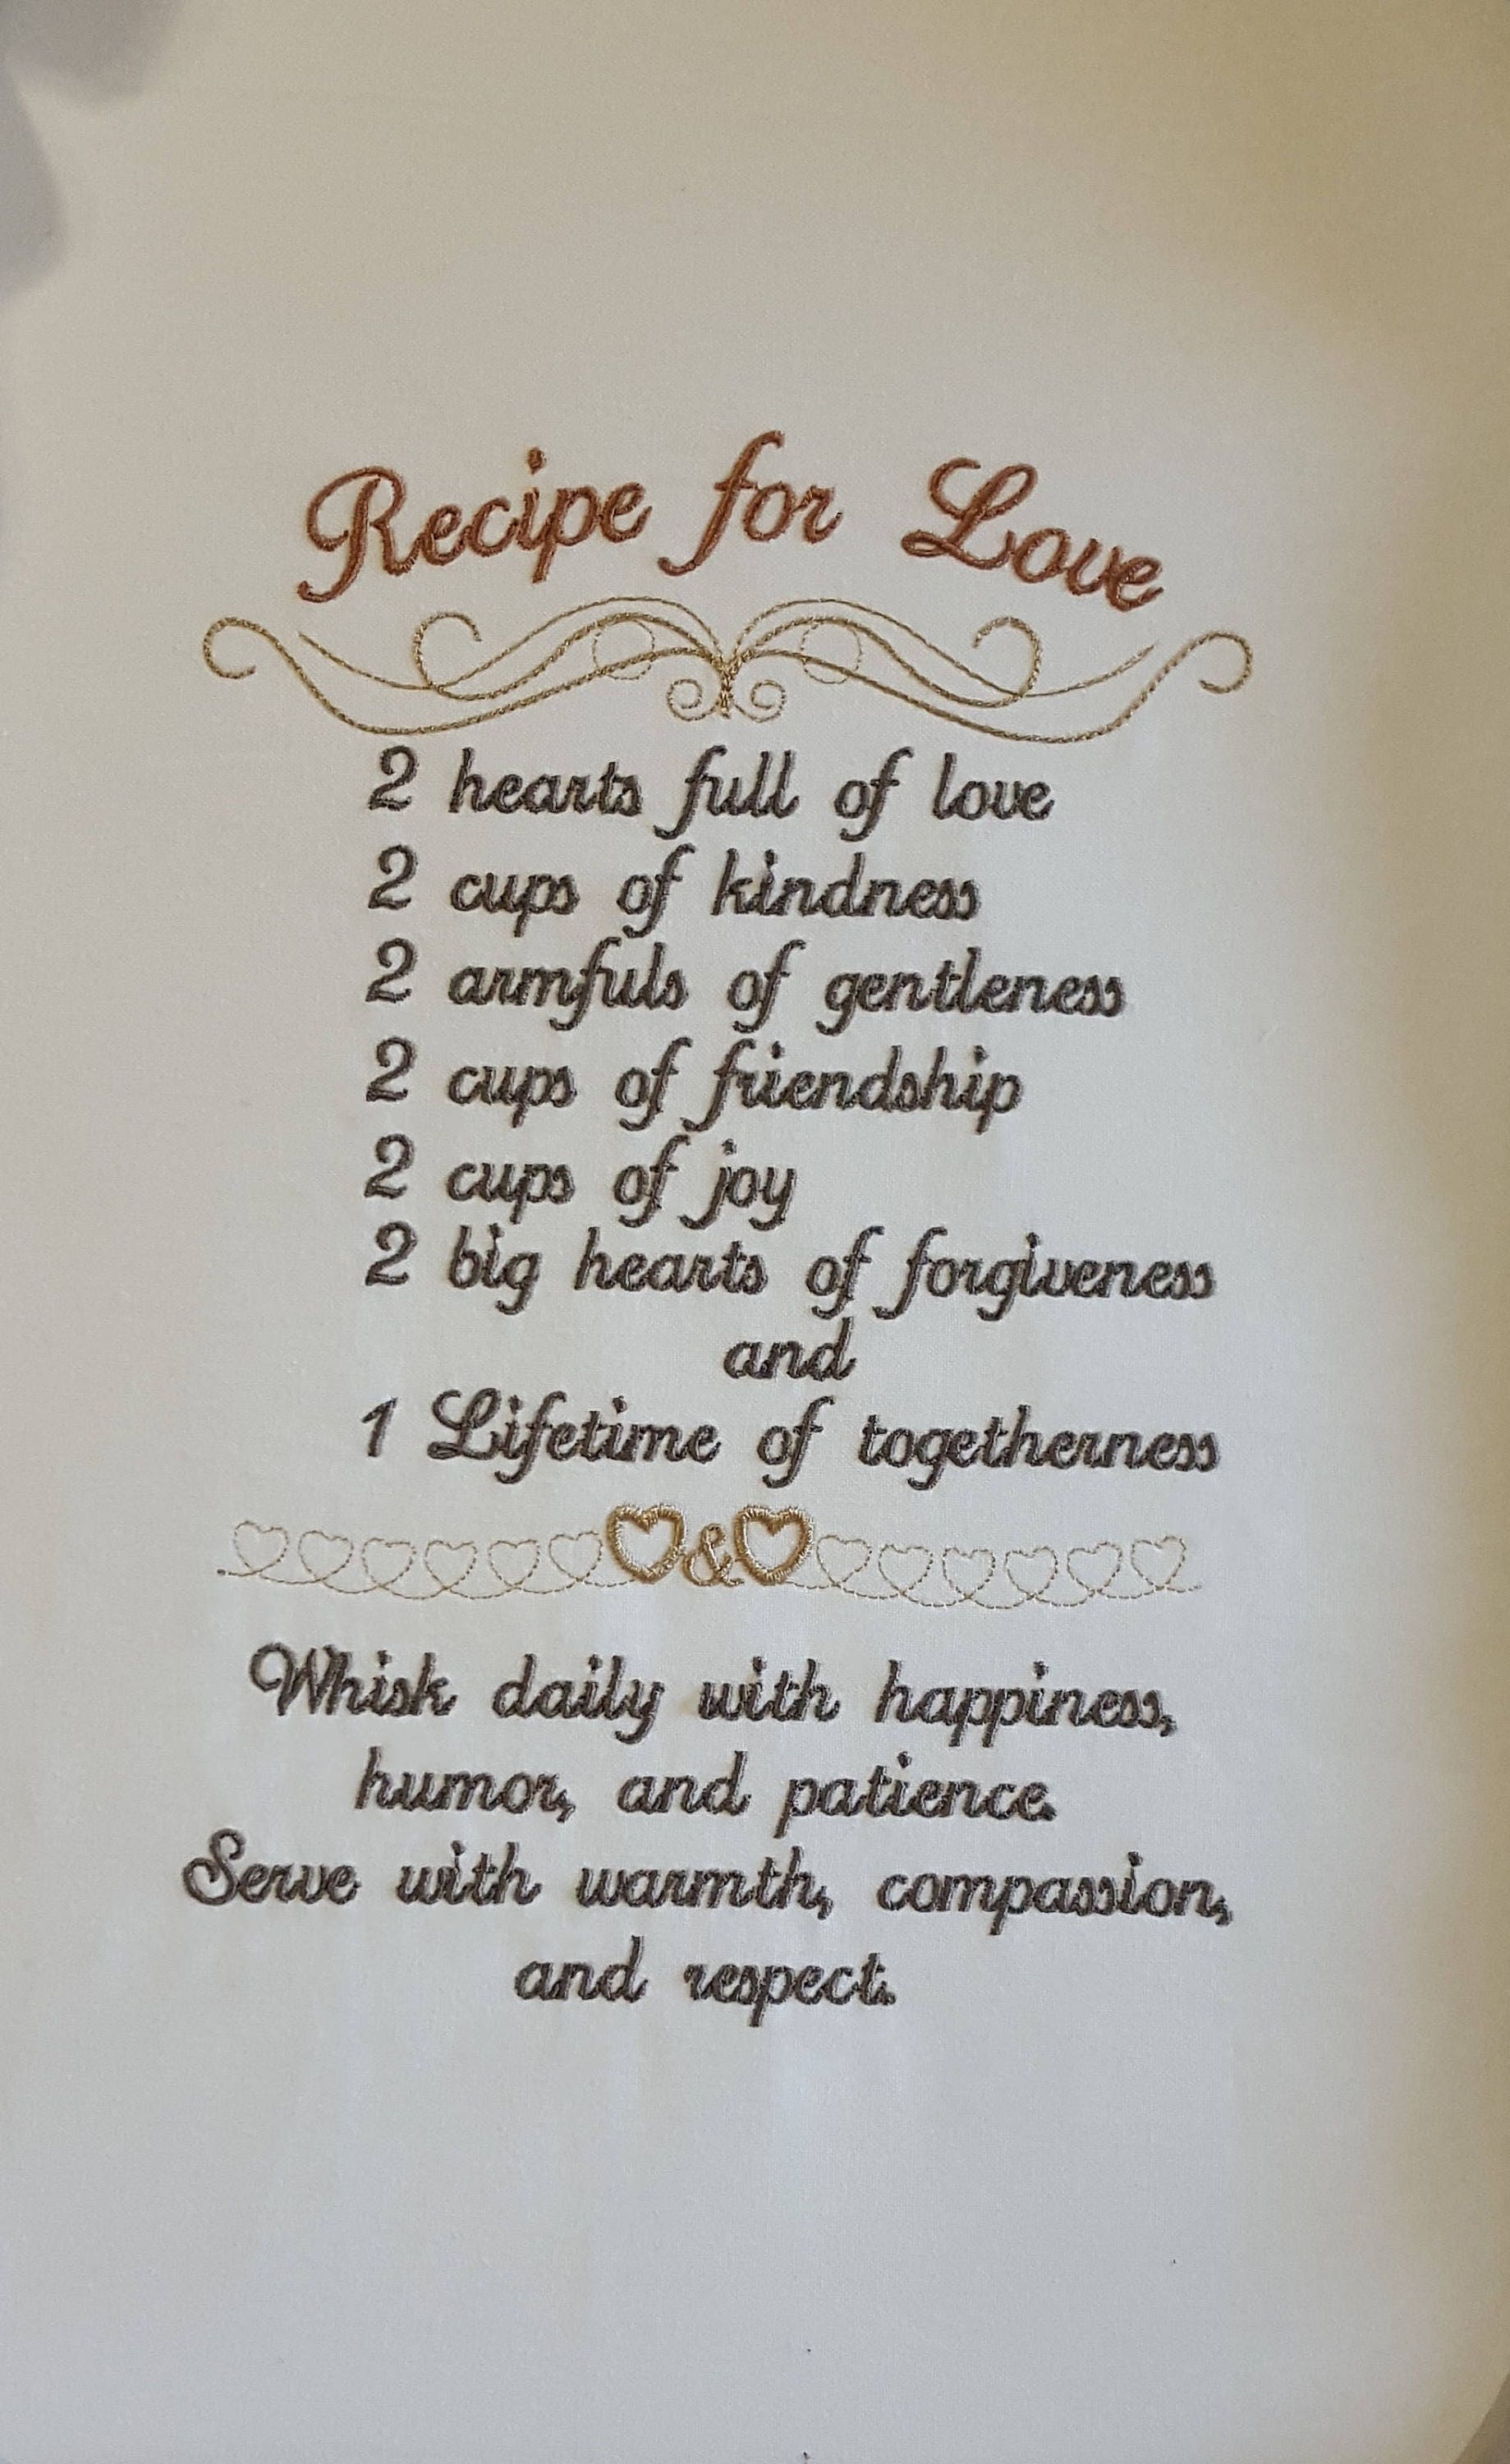 Recipe for Love
2 hearts full of love
2 cups of kindness
2 armfuls of gentleness
2 cups of friendship
2 cups of joy
2 big hearts of forgiveness
and
1 Lifetime of togetherness
&
Whisk daily with happiness,
humor, and patience.
Serve with warmth, compassion,
and respect.